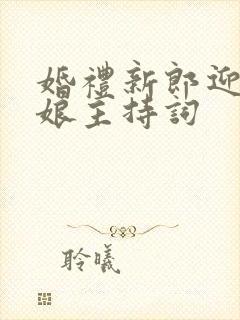 婚禮新郎迎
娘主持詞
聆曦